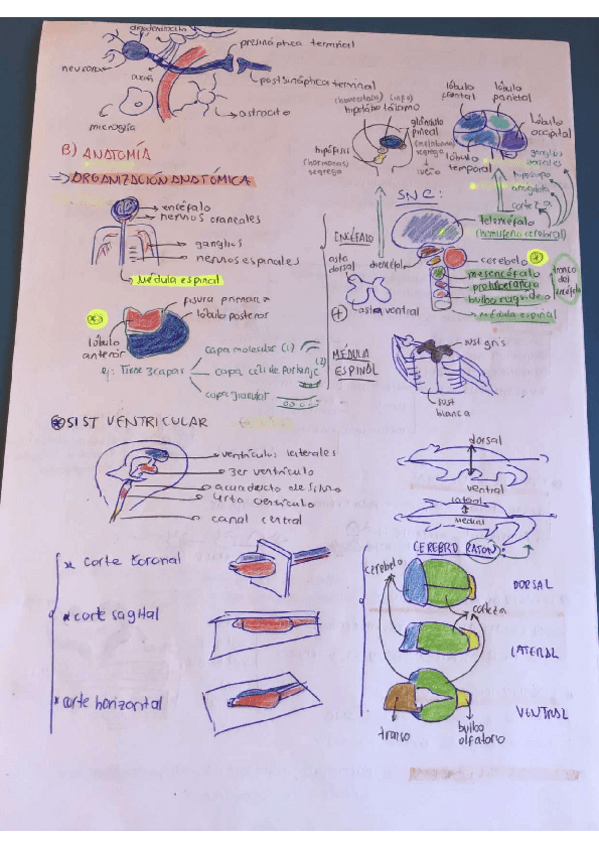 presináptica terminal
neurona
axón
postsináptica terminal
microglía
astrocito
(homeostasis) (info)
hipotálamo tálamo
glándula
pineal
(melatonina)
segrega
sueño
hipófisis
(hormonas)
segrega
lóbulo
frontal
lóbulo
parietal
lóbulo
occipital
lóbulo
temporal
ganglios
basales
hipocampo
amígdala
corteza
B) ANATOMÍA
=> ORGANIZACIÓN ANATÓMICA
encéfalo
nervios craneales
ganglios
nervios espinales
Médula espinal
SNC:
telencéfalo
(hemisferio cerebral)
ENCÉFALO
diencéfalo
cerebelo
mesencéfalo
protuberancia
bulbo raquídeo
médula espinal
tronco
del
encéfalo
asta
dorsal
asta ventral
MÉDULA
ESPINAL
sust gris
sust
blanca
fisura primaria
lóbulo posterior
lóbulo
anterior
ej: Tiene 3 capas
capa molecular (1)
capa céls de Purkinje (2)
capa granular
SIST VENTRICULAR
ventrículos laterales
3er ventrículo
acueducto de Silvio
4rto ventrículo
canal central
dorsal
ventral
lateral
medial
CEREBRO RATÓN:
* corte coronal
* corte sagital
* corte horizontal
cerebelo
DORSAL
corteza
LATERAL
VENTRAL
tronco
bulbo
olfatorio